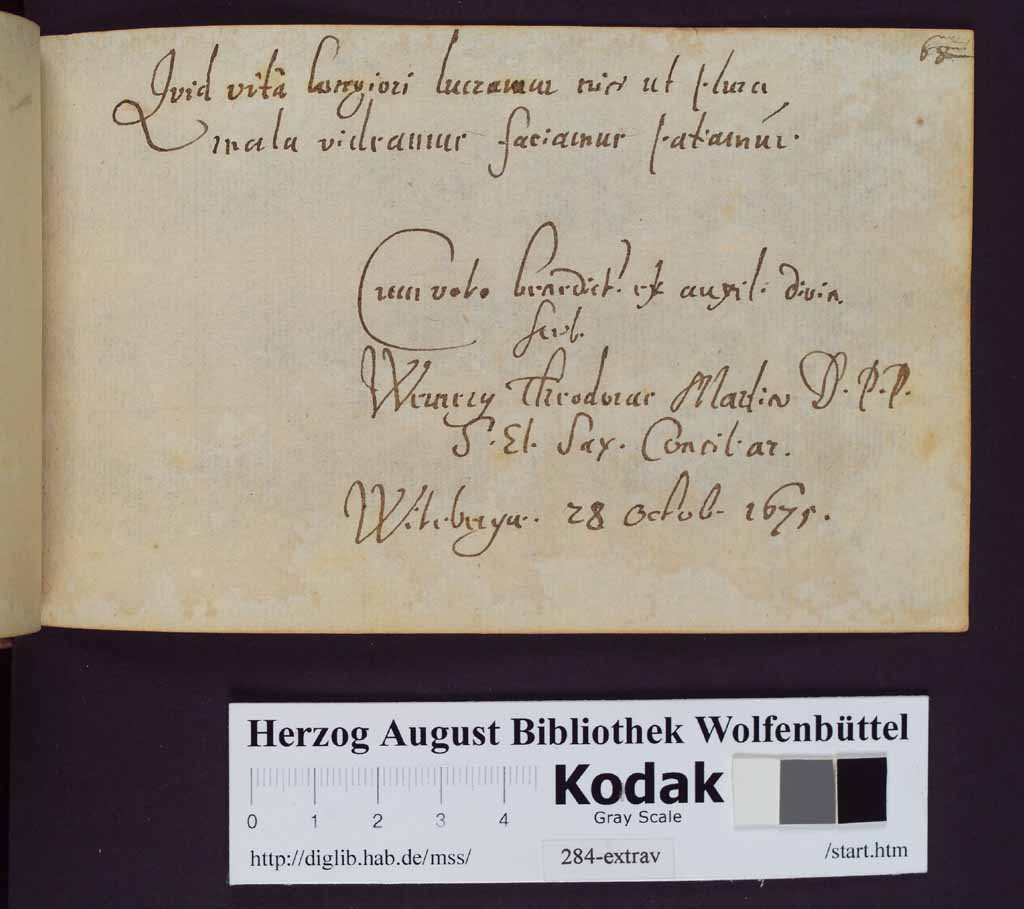 68
Quid vitâ longiori lucramur nisi ut plura
mala videamus faciamus patiamur.
Cum voto benedict. et auxil. divin.
scrib.
Wernerg Theodorus Martin D. P. P.
S. El. Sax. Consiliar.
Witebergæ. 28 Octob. 1675.
Herzog August Bibliothek Wolfenbüttel
Kodak
Gray Scale
0 1 2 3 4
http://diglib.hab.de/mss/ 284-extrav /start.htm